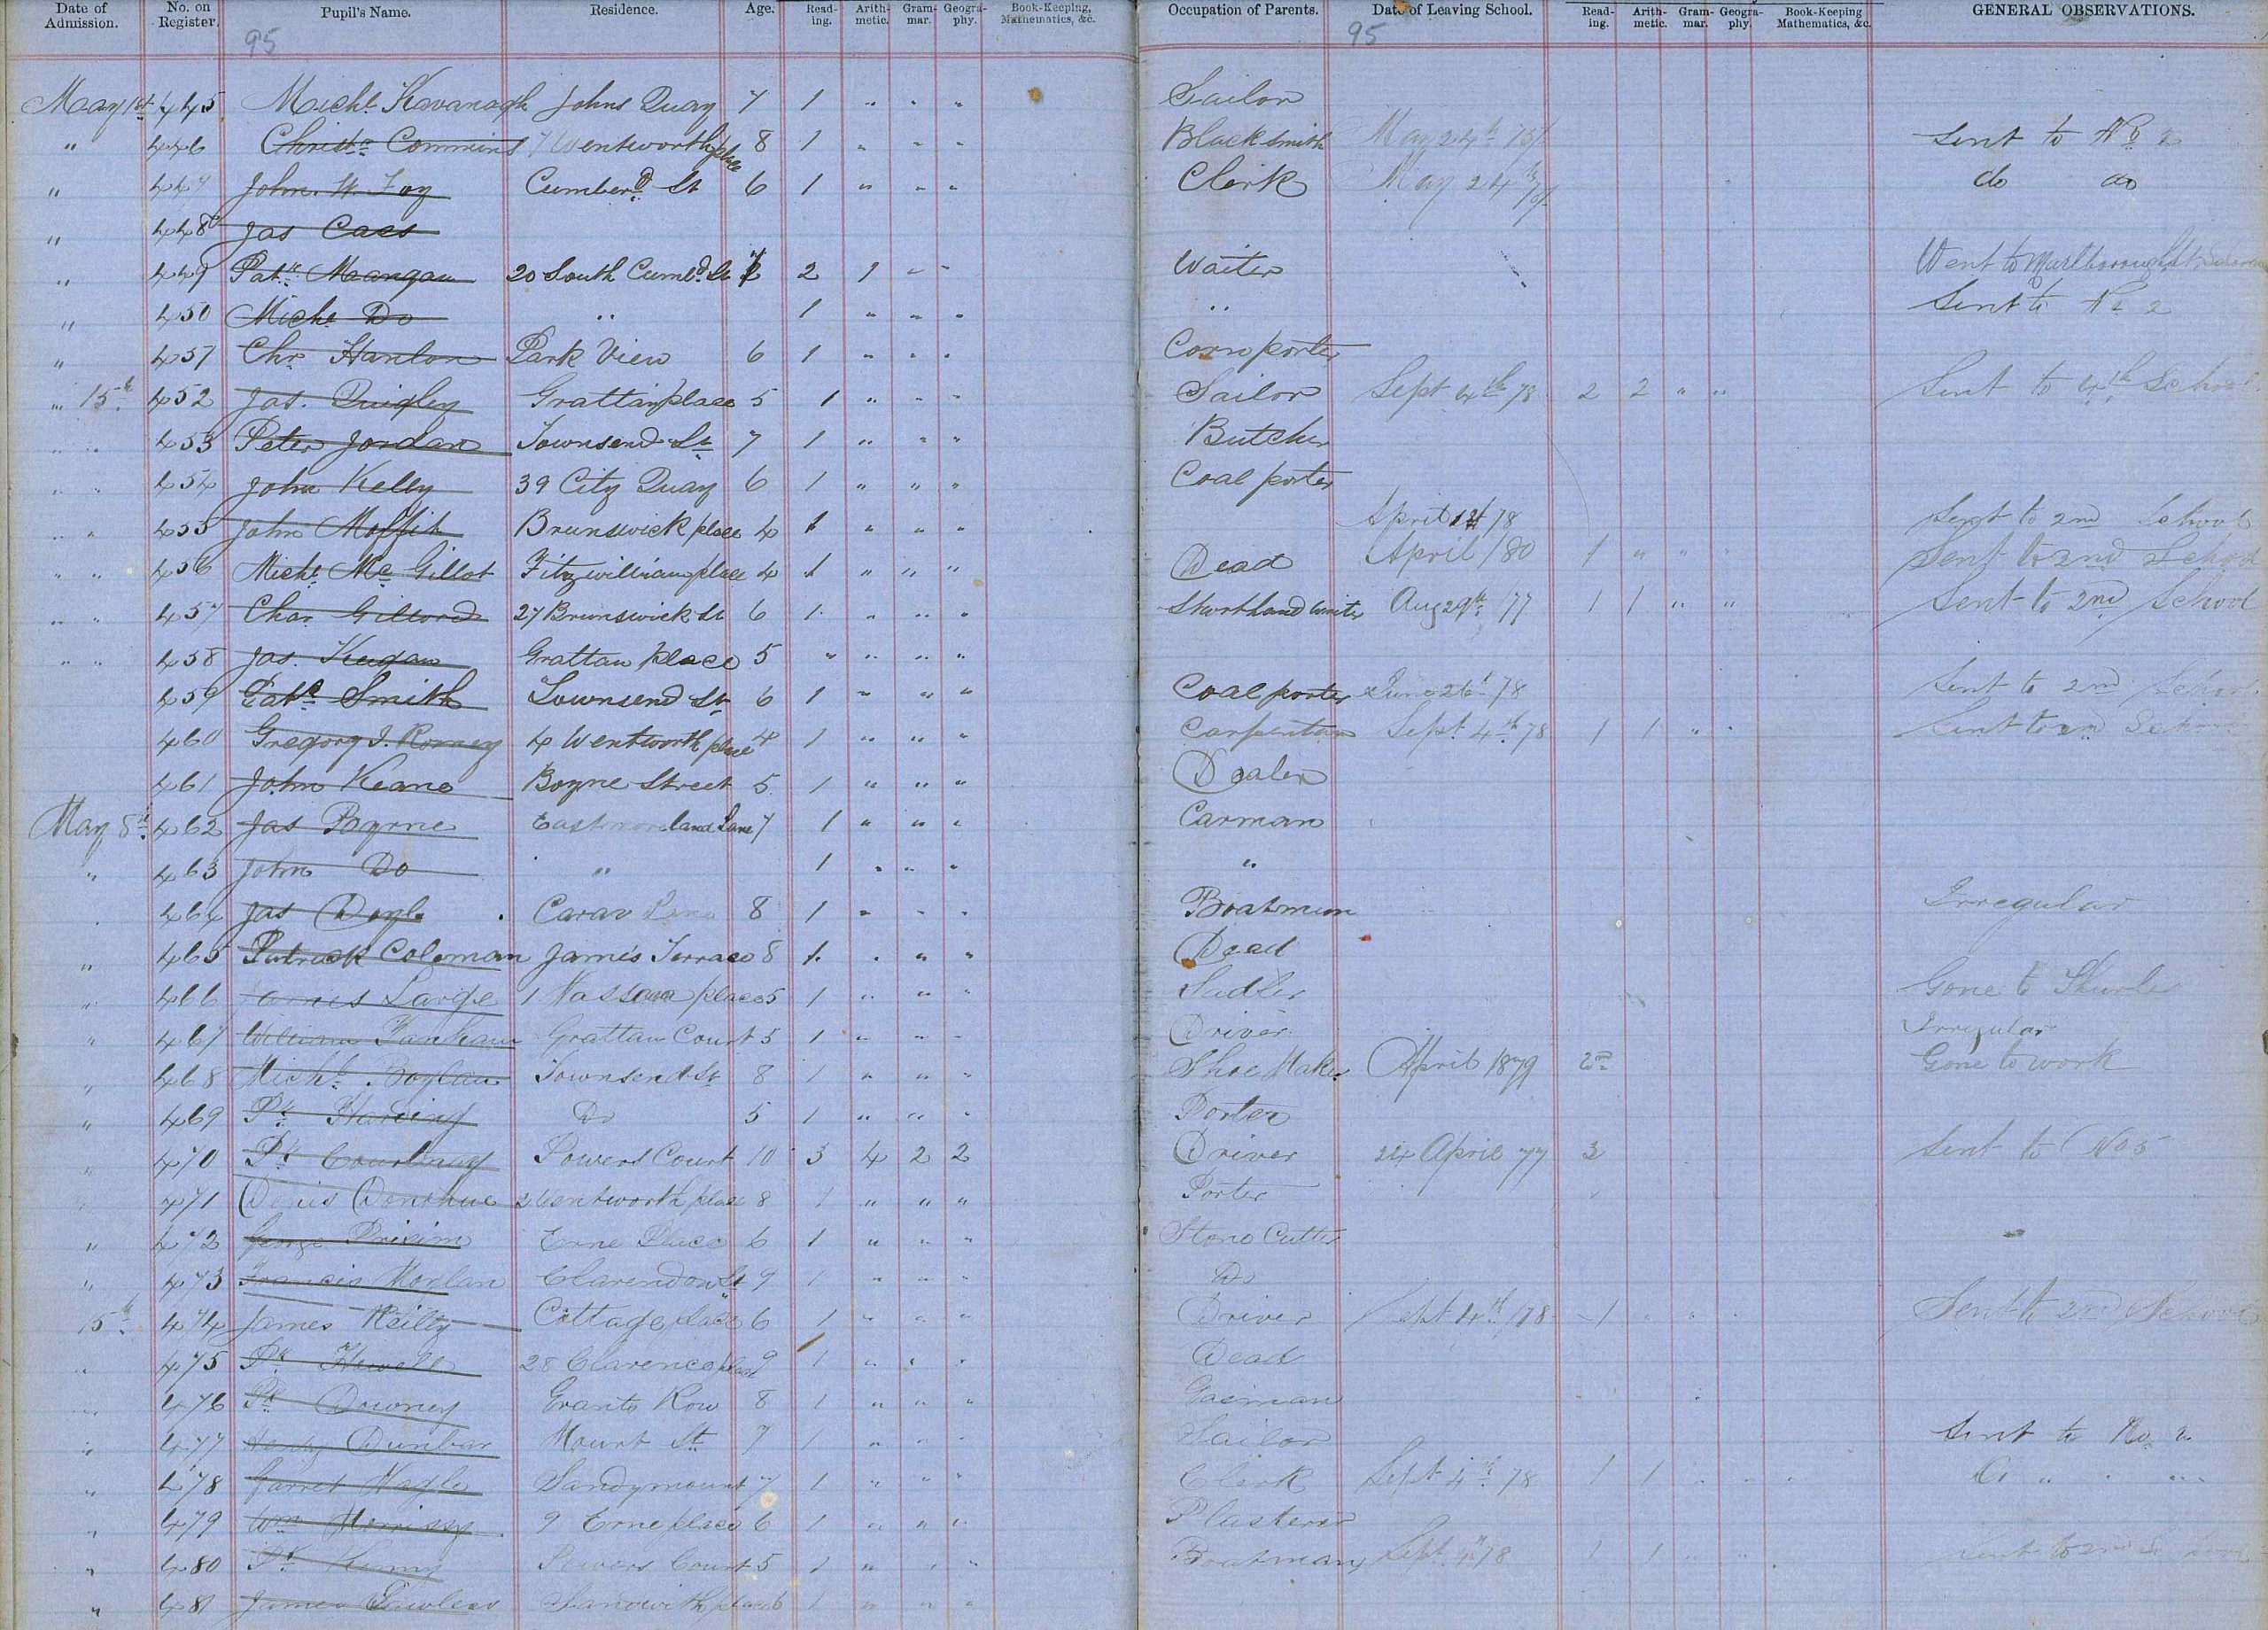 Date of Admission. No. on Register. Pupil's Name. Residence. Age. Reading. Arithmetic. Grammar. Geography. Book-Keeping, Mathematics, &c. Occupation of Parents. Date of Leaving School. Reading. Arithmetic. Grammar. Geography. Book-Keeping Mathematics, &c. GENERAL OBSERVATIONS.
95 95
May 1st 445 Michl Kavanagh Johns Quay 7 1 " " " Sailor
" 446 Christr Commins 7 Wentworth place 8 1 " " " Blacksmith May 24th Sent to No 2
" 447 John W. Foy Cumberd St 6 1 " " " Clerk May 24th do do
" 448 Jas Caes
" 449 Patk Mangan 20 South Cumbd St 2 1 " " Waiter Went to Marlborough St
" 450 Michl Do " 1 " " " " Sent to No 2
" 451 Chr Hanlon Park View 6 1 " " " Corn porter
" 15th 452 Jas. Quigley Grattan place 5 1 " " " Sailor Sept 4th 78 2 2 " " Sent to 4th School
" " 453 Peter Jordan Townsend St 7 1 " " " Butcher
" " 454 John Kelly 39 City Quay 6 1 " " " Coal porter
" " 455 John Moffit Brunswick place 4 1 " " " April 78 Sent to 2nd School
" " 456 Michl Mc Gillot Fitzwilliam place 4 1 " " " Dead April /80 1 " " " Sent to 2nd School
" " 457 Chas Gilword 27 Brunswick St 6 1 " " " Shorthand writer Aug 29th 77 1 1 " " Sent to 2nd School
" " 458 Jas. Keegan Grattan place 5 " " " "
459 Patk Smith Townsend St 6 1 " " " Coal porter June 26th 78 Sent to 2nd School
460 Gregory J. Romey 4 Wentworth place 4 1 " " " Carpenter Sept 4th 78 1 1 " " Sent to 2nd School
461 John Keane Boyne Street 5 1 " " " Dealer
May 8th 462 Jas Byrne Eastmoreland Lane 7 1 " " " Carman
" 463 John Do " 1 " " " "
464 Jas Doyle 8 1 " " " Boatman Irregular
" 465 Patrick Coleman James's Terrace 8 1 " " " Dead
" 466 James Large 1 Nassau place 5 1 " " " Sadler Gone to Thurles
" 467 William Fanham Grattan Court 5 1 " " " Driver Irregular
" 468 Michl Boylan Townsend St 8 1 " " " Shoe Maker April 1879 2nd Gone to work
" 469 Pk Harding Do 5 1 " " " Porter
" 470 Pk Courtney Powers Court 10 3 4 2 2 Driver 24 April 77 3 Sent to No 5
" 471 Denis Donohue 2 Wentworth place 8 1 " " " Porter
" 472 George Erne Place 6 1 " " " Stone Cutter
" 473 Francis Clarendon St 9 1 " " " Do
15th 474 James Reilly Cottage place 6 1 " " " Driver Sept 4th /78 1 " " " Sent to 2nd School
" 475 Pk Howell 28 Clarence place 9 1 " " " Dead
" 476 Pk Downey Grants Row 8 1 " " " Gasman
" 477 Henry Dunbar Mount St 7 1 " " " Sailor Sent to No 2
" 478 Garret Nagle Sandymount 7 1 " " " Clerk Sept 4th 78 1 1 " " Do " "
" 479 Wm Morrissy 9 Erne place 6 1 " " " Plasterer
" 480 Pk Kenny Powers Court 5 1 " " " Boatman Sept 4th 78 1 1 " " Sent to 2nd
" 481 James Lawless Sandwith place 6 1 " " "